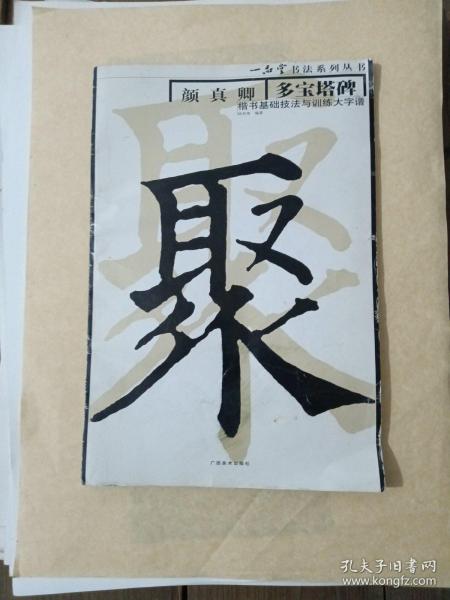 书法系列丛书
颜真卿
多宝塔碑
楷书基础技法与训练大字谱
编著
聚
广西美术出版社
孔夫子旧书网
www.kongfz.com